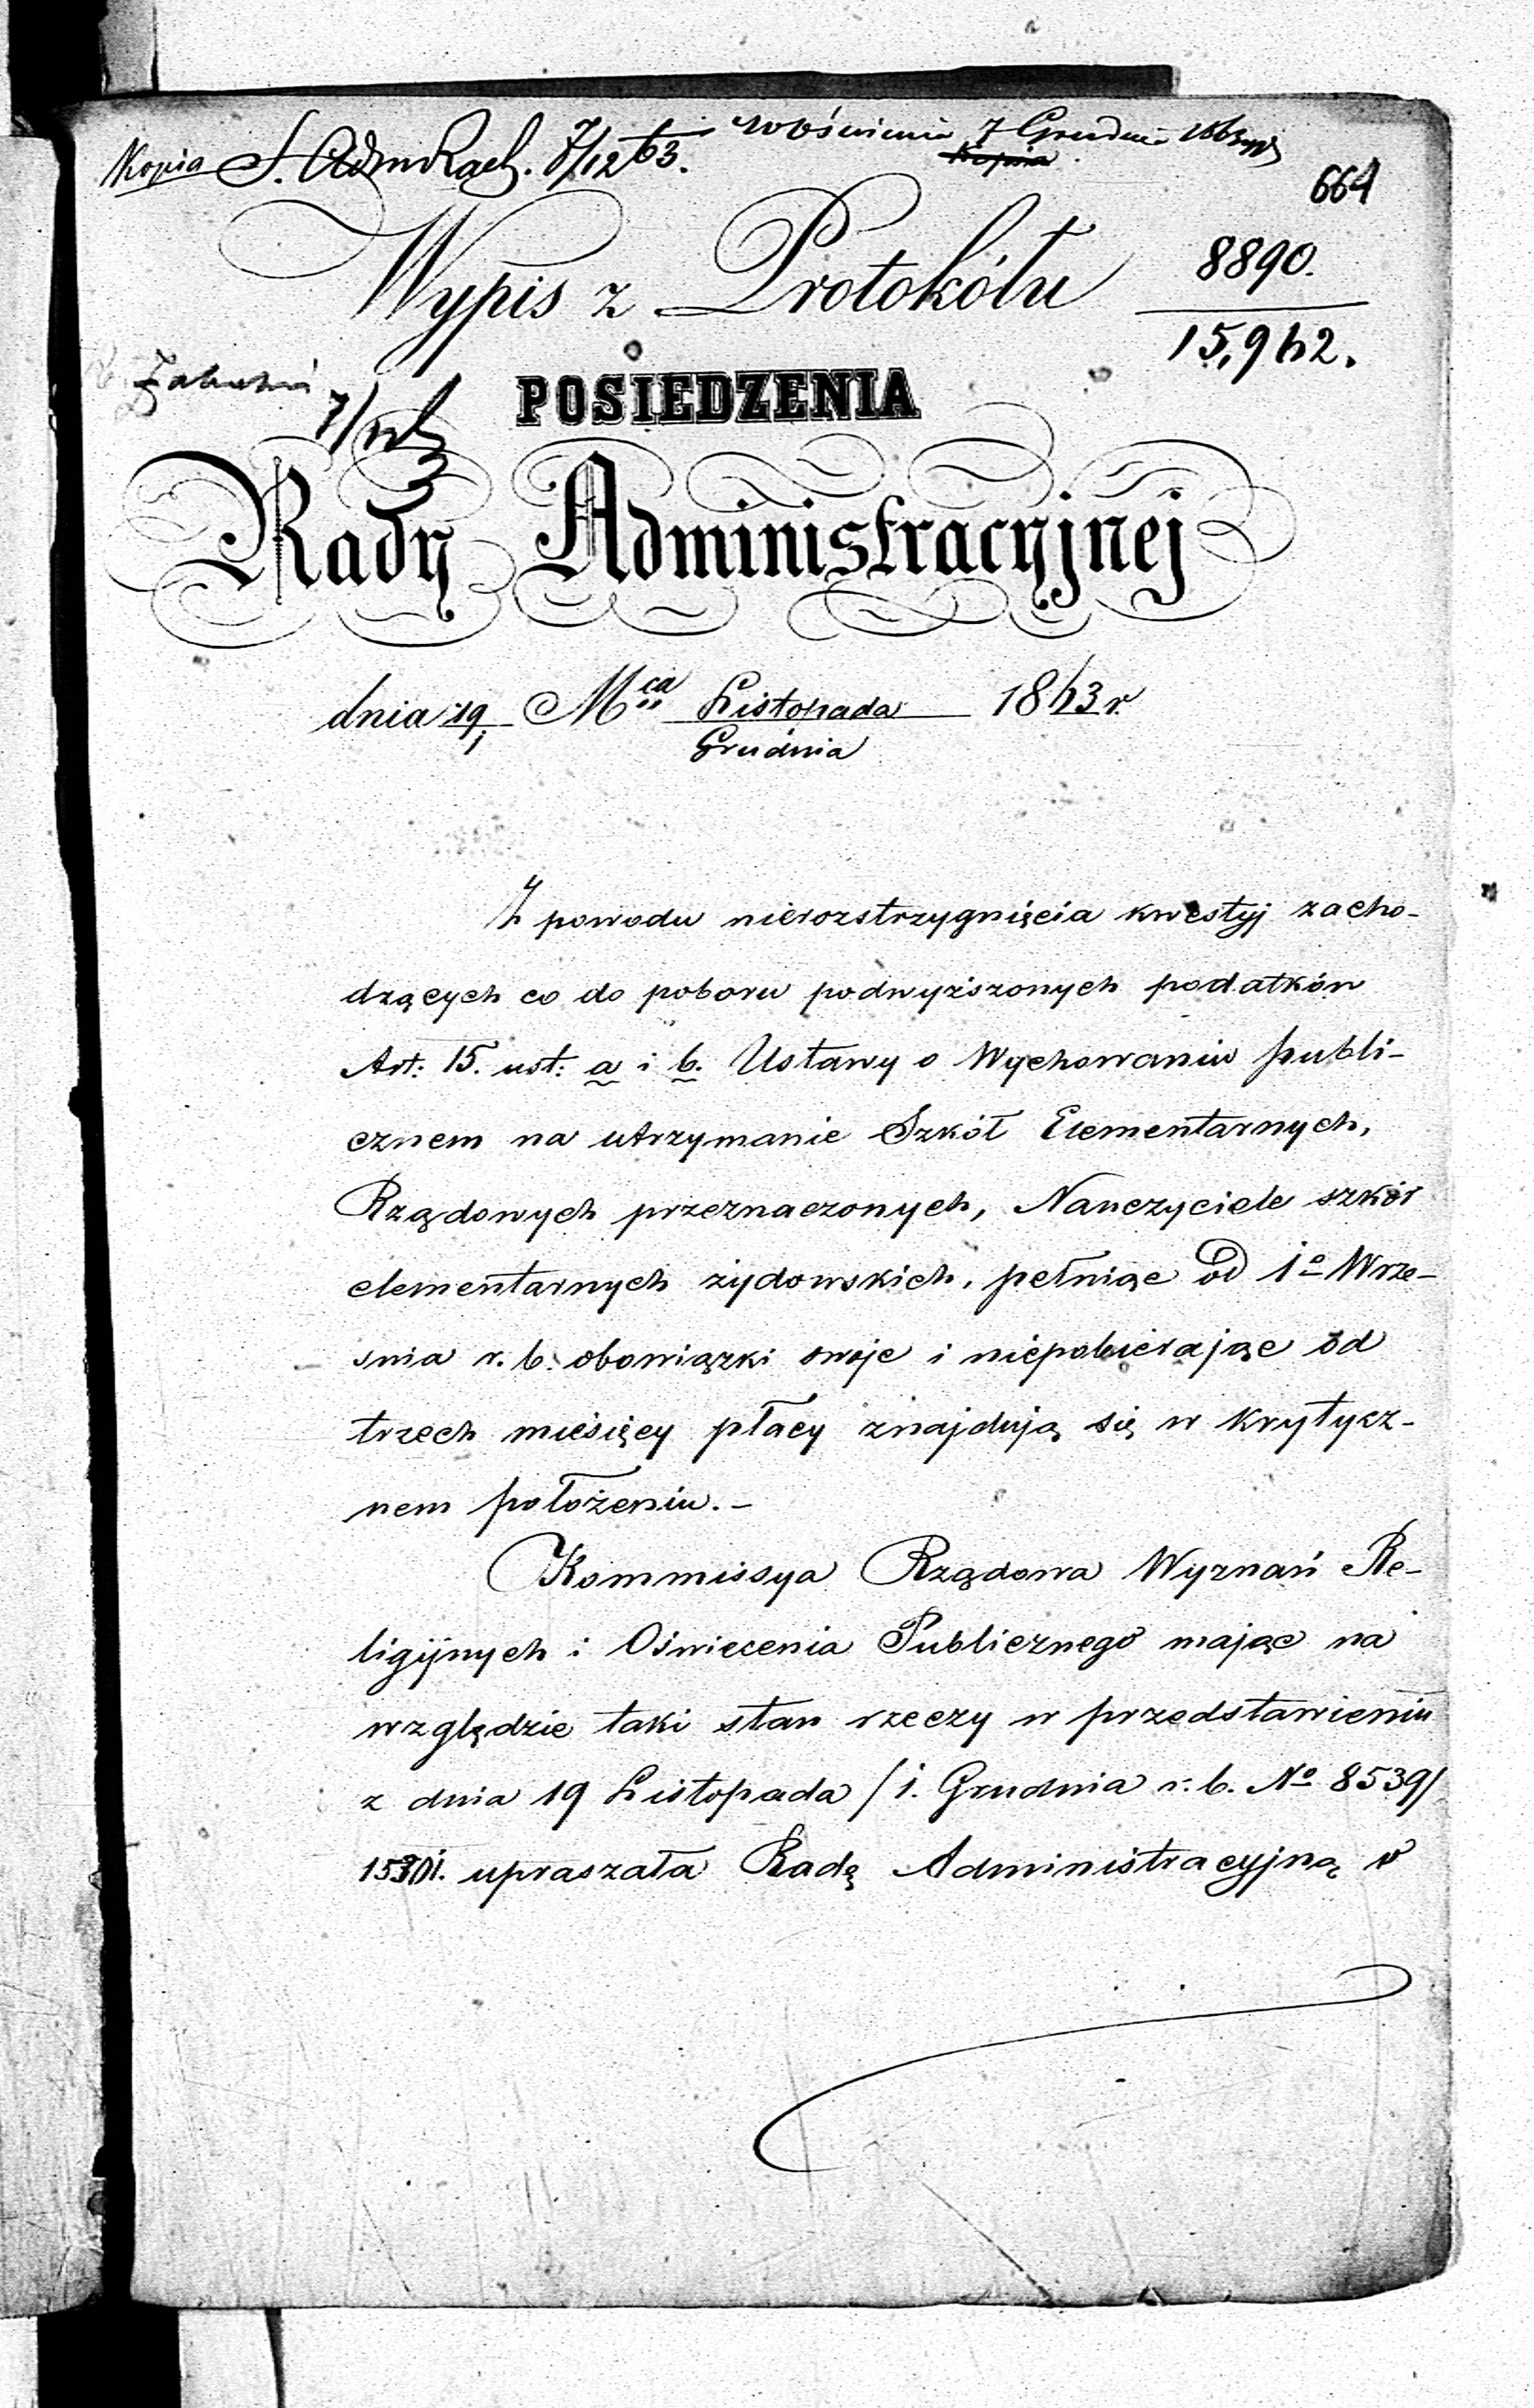 Kopia S. Adm Rach. 7/12 63. 7 Grudnia
Kopia
664
Wypis z Protokółu
8890.
15,962.
POSIEDZENIA
Rady Administracyjnej
dnia 19/1 Mca Listopada/Grudnia 1863 r.
Z powodu nierozstrzygnięcia kwestyj zacho-
dzących co do poboru podwyższonych podatków
Art: 15. ust: a i b. Ustawy o Wychowaniu publi-
cznem na utrzymanie Szkół Elementarnych,
Rządowych przeznaczonych, Nauczyciele szkół
elementarnych żydowskich, pełniąc od 1o Wrze-
śnia r. b. obowiązki swoje i niepobierając od
trzech miesięcy płacy znajdują się w krytycz-
nem położeniu.-
Kommissya Rządowa Wyznań Re-
ligijnych i Oświecenia Publicznego mając na
względzie taki stan rzeczy w przedstawieniu
z dnia 19 Listopada / 1. Grudnia r. b. No 8539/
upraszała Radę Administracyjną o